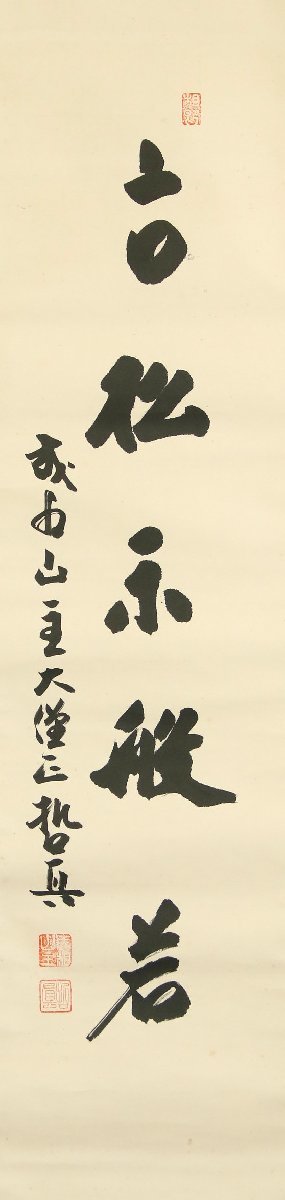 古松示般若
成田山主大僧正哲真